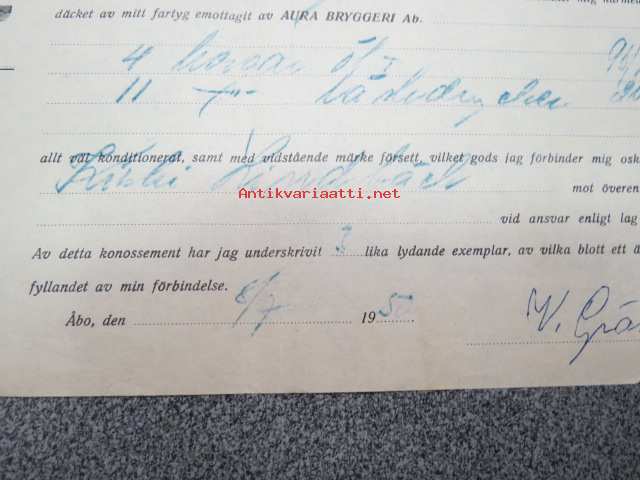 däcket av mitt fartyg emottagit av AURA BRYGGERI Ab.
4 korgar öl I
11 -"- läskdrycker
allt väl konditionerat, samt med vidstående märke försett, vilket gods jag förbinder mig osk
Antikvariaatti.net
mot överen
vid ansvar enligt lag
Av detta konossement har jag underskrivit 3 lika lydande exemplar, av vilka blott ett ä
fyllandet av min förbindelse.
Åbo, den 8/7 1950
V. Grä